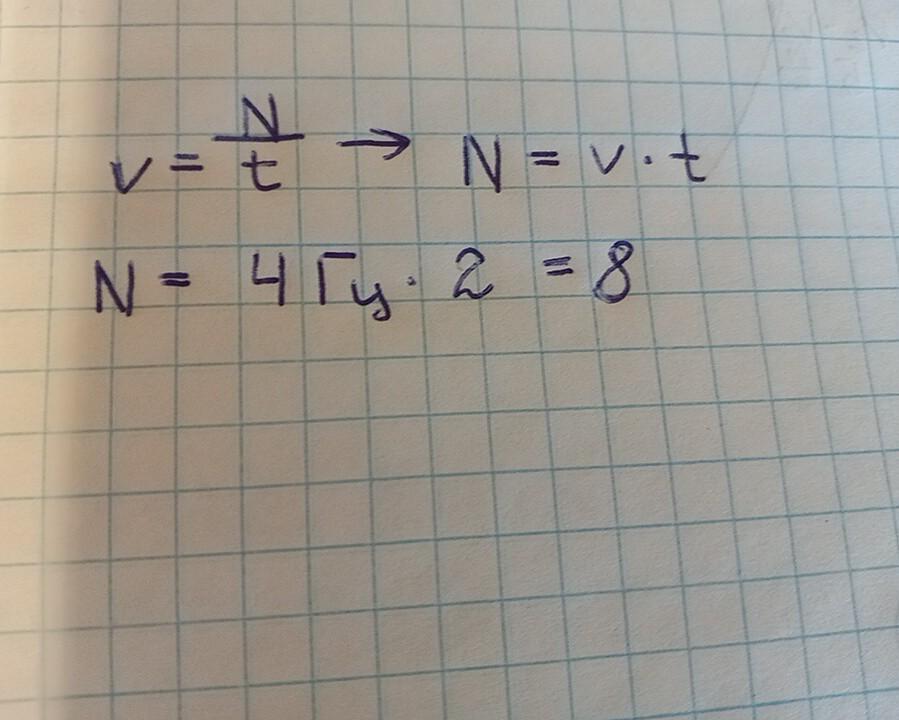 v = N/t → N = v · t
N = 4 Гц · 2 = 8